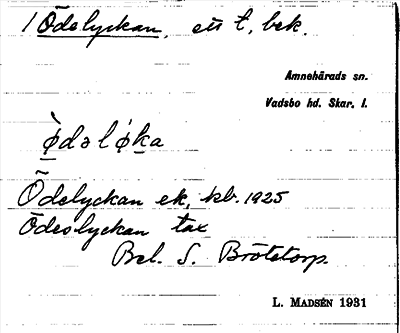 1 Ödelyckan, ett t, bek.
Amnehärads sn.
Vadsbo hd. Skar. l.
ø̀dəløka
Ödelyckan ek, kb. 1925
Ödeslyckan tax
Bel. S. Brötetorp.
L. MADSÉN 1931